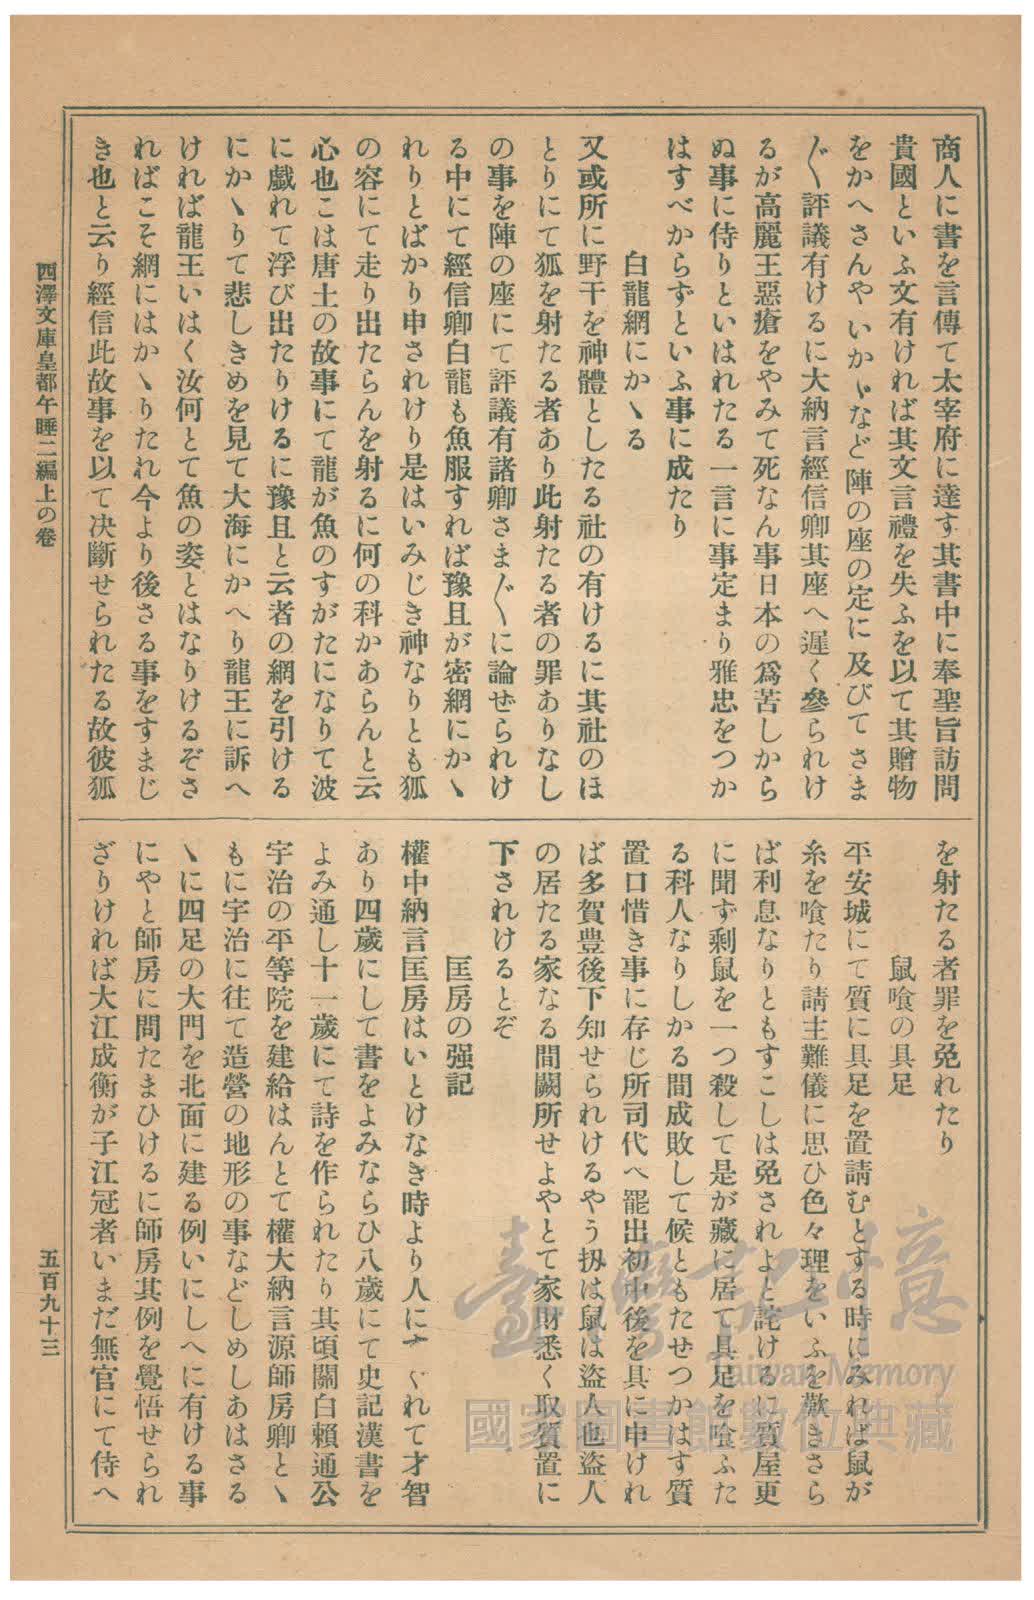 商人に書を言傳て太宰府に達す其書中に奉聖旨訪問
貴國といふ文有ければ其文言禮を失ふを以て其贈物
をかへさんやいかゞなど陣の座の定に及びてさま
〲評議有けるに大納言經信卿其座へ遲く參られけ
るが高麗王惡瘡をやみて死なん事日本の爲苦しから
ぬ事に侍りといはれたる一言に事定まり雅忠をつか
はすべからずといふ事に成たり
白龍網にかゝる
又或所に野干を神體としたる社の有けるに其社のほ
とりにて狐を射たる者あり此射たる者の罪ありなし
の事を陣の座にて評議有諸卿さま〲に論ぜられけ
る中にて經信卿白龍も魚服すれば豫且が密網にかゝ
れりとばかり申されけり是はいみじき神なりとも狐
の容にて走り出たらんを射るに何の科かあらんと云
心也こは唐土の故事にて龍が魚のすがたになりて波
に戯れて浮び出たりけるに豫且と云者の網を引ける
にかゝりて悲しきめを見て大海にかへり龍王に訴へ
ければ龍王いはく汝何とて魚の姿とはなりけるぞさ
ればこそ網にはかゝりたれ今より後さる事をすまじ
き也と云り經信此故事を以て決斷せられたる故彼狐
を射たる者罪を免れたり
鼠喰の具足
平安城にて質に具足を置請むとする時にみれば鼠が
糸を喰たり請主難儀に思ひ色々理をいふを歎きさら
ば利息なりともすこしは免されよと詫けるに質屋更
に聞ず剩鼠を一つ殺して是が藏に居て具足を喰ふた
る科人なりしかる間成敗して候ともたせつかはす質
置口惜き事に存じ所司代へ罷出初中後を具に申けれ
ば多賀豊後下知せられけるやう扨は鼠は盗人也盗人
の居たる家なる間闕所せよやとて家財悉く取質置に
下されけるとぞ
匡房の强記
權中納言匡房はいとけなき時より人にすぐれて才智
あり四歲にして書をよみならひ八歲にて史記漢書を
よみ通し十一歲にて詩を作られたり其頃關白賴通公
宇治の平等院を建給はんとて權大納言源師房卿とゝ
もに宇治に往て造營の地形の事などしめしあはさる
ゝに四足の大門を北面に建る例いにしへに有ける事
にやと師房に問たまひけるに師房其例を覺悟せられ
ざりければ大江成衡が子江冠者いまだ無官にて侍へ
西澤文庫皇都午睡二編上の卷
五百九十三
臺灣記憶
Taiwan Memory
國家圖書館數位典藏